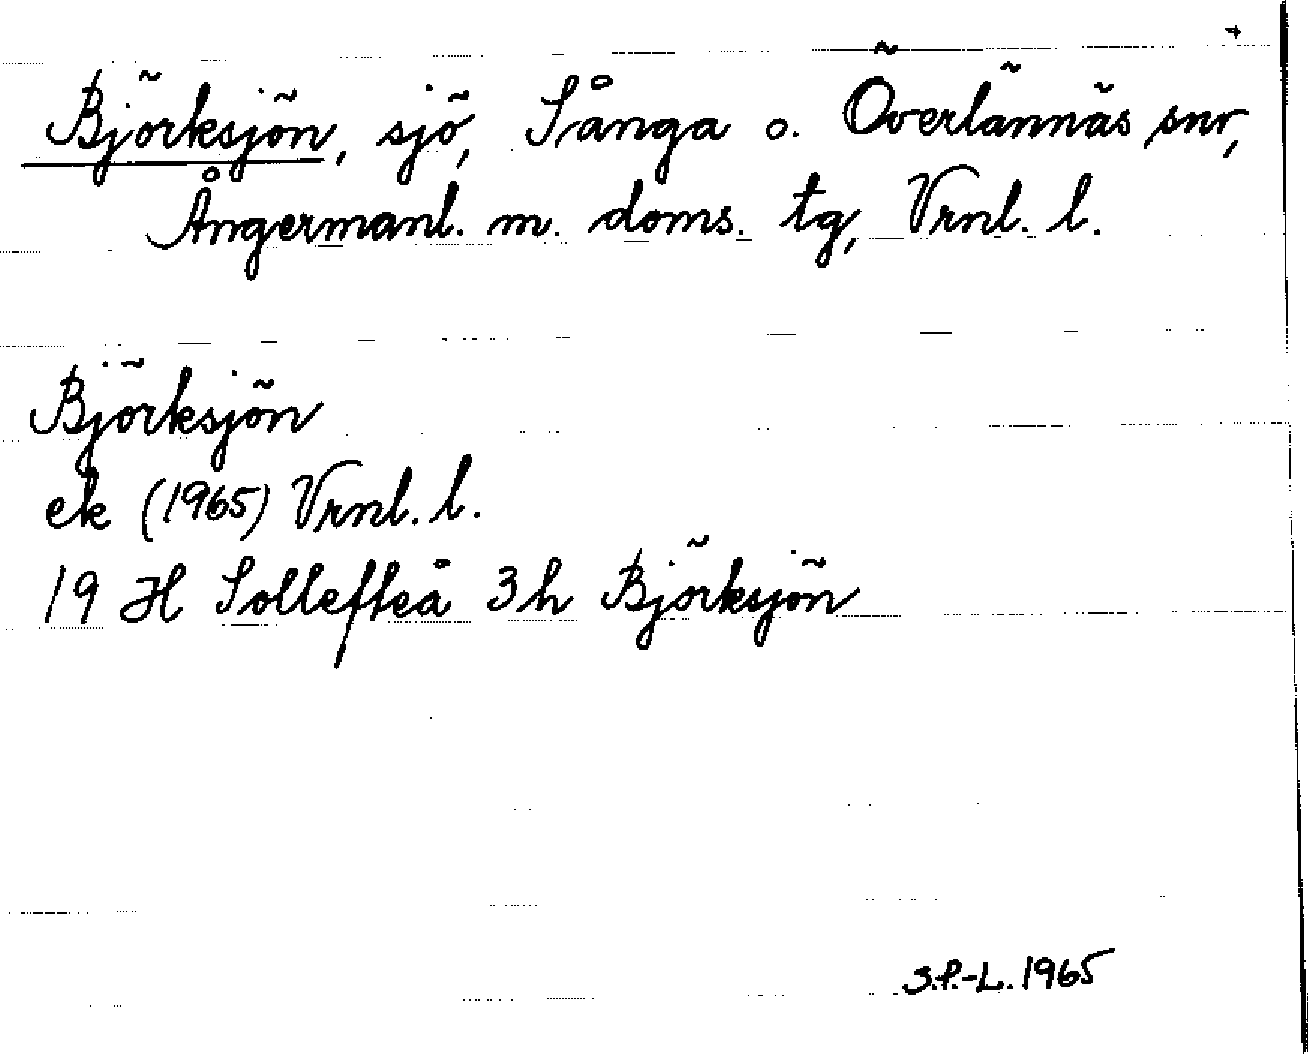 +
Björksjön, sjö, Sånga o. Överlännäs snr,
Ångermanl. m. doms. tg, Vrnl. l.
Björksjön
ek (1965) Vrnl. l.
19 H Sollefteå 3h Björksjön
S.P.-L. 1965